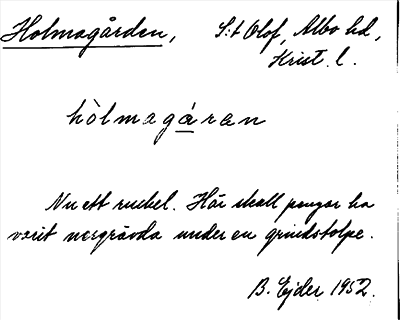 Holmagården, S:t Olof, Albo hd,
Krist. l.
hòlmagáran
Nu ett ruckel. Här skall pengar ha
varit nergrävda under en grindstolpe.
B. Ejder 1952.